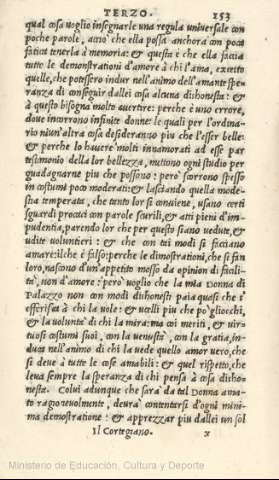 TERZO. 153
qual cosa voglio insegnarle una regula universale con
poche parole, accio che ella possa anchora con poca
fatica tenerla à memoria: & questa è che ella faccia
tutte le demonstrationi d'amore à chi l'ama, excetto
quelle, che potessero indur nell'animo dell'amante spe
ranza di conseguir da lei cosa alcuna dishonesta: &
à questo bisogna molto avertire: perche è uno errore,
dove incorrono infinite donne: le quali per l'ordina-
rio niun'altra cosa desiderano piu che l'esser belle:
& perche lo havere molti inamorati ad esse par
testimonio della lor bellezza, mettono ogni studio per
guadagnarne piu che possono: però scorrono spesso
in costumi poco moderati: & lasciando quella mode-
stia temperata, che tanto lor si conviene, usano certi
sguardi procaci con parole scurili, & atti pieni d'im-
pudentia, parendo lor che per questo siano vedute, &
udite voluntieri: & che con tai modi si facciano
amare: ilche è falso: perche le dimostrationi, che si fan
loro, nascono d'un'appetito mosso da opinion di facili-
tà, non d'amore: però voglio che la mia Donna di
Palazzo non con modi dishonesti paia quasi che s'
offerisca à chi la vole: & uccelli piu che po gliocchi,
& la voluntà di chi la mira: ma coi meriti, & vir-
tuosi costumi suoi, con la venustà, con la gratia, in-
duca nell'animo di chi la vede quello amor vero, che
si deve à tutte le cose amabili: & quel rispetto, che
leva sempre la speranza di chi pensa à cosa disho-
nesta. Colui adunque che sarà da tal Donna ama-
to ragionevolmente, devrà contentarsi d'ogni mini-
ma demostratione: & apprezzar piu da lei un sol
Il Cortegiano. x
Ministerio de Educación, Cultura y Deporte